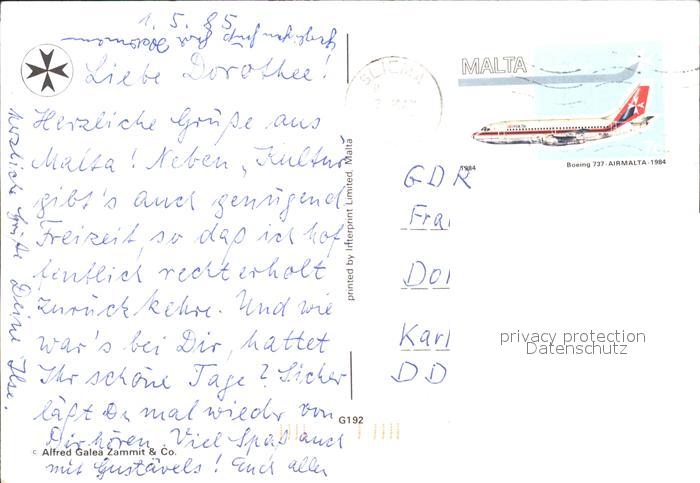 1. 5. 85
Liebe Dorothee!
Herzliche Grüße aus
Malta! Neben „Kultur"
gibt's auch genügend
Freizeit, so daß ich hof
fentlich recht erholt
zurückkehre. Und wie
war's bei Dir, hattet
Ihr schöne Tage? Sicher
läßt Du mal wieder von
Dir hören. Viel Spaß auch
mit Gustävels! Euch allen
herzliche Grüße Deine Ilse.
© Alfred Galea Zammit & Co.
printed by Interprint Limited. Malta
G192
SLIEMA
MALTA
1984
Boeing 737-AIRMALTA-1984
GDR
Fra
Dor
Karl
DD
privacy protection
Datenschutz